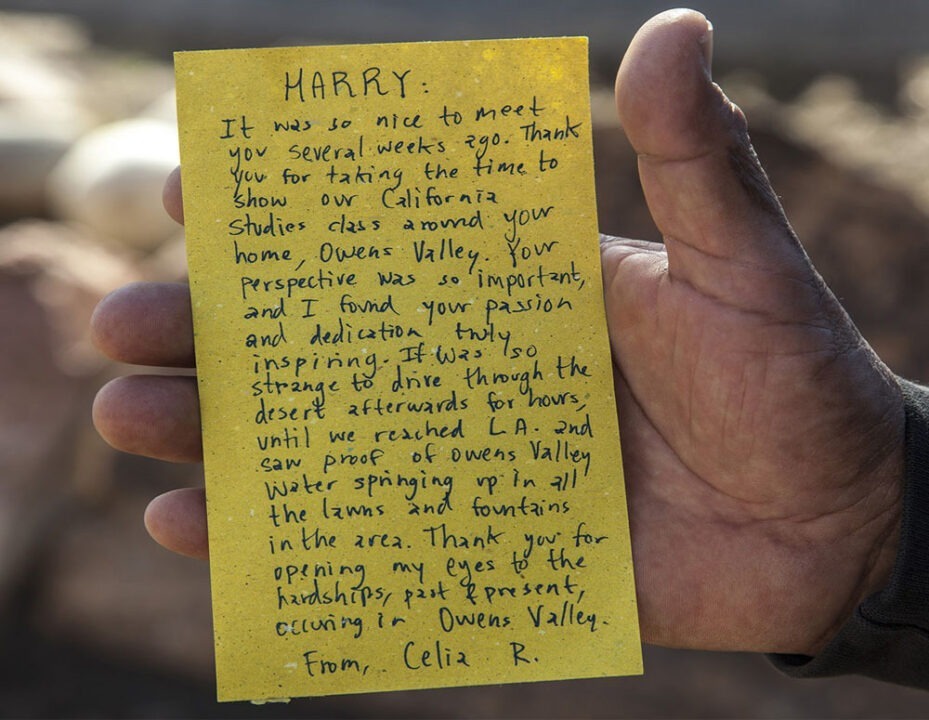 HARRY:
It was so nice to meet
you several weeks ago. Thank
you for taking the time to
show our California
studies class around your
home, Owens Valley. Your
perspective was so important,
and I found your passion
and dedication truly
inspiring. It was so
strange to drive through the
desert afterwards for hours,
until we reached L.A. and
saw proof of Owens Valley
Water springing up in all
the lawns and fountains
in the area. Thank you for
opening my eyes to the
hardships, past & present,
occuring in Owens Valley.
From, Celia R.